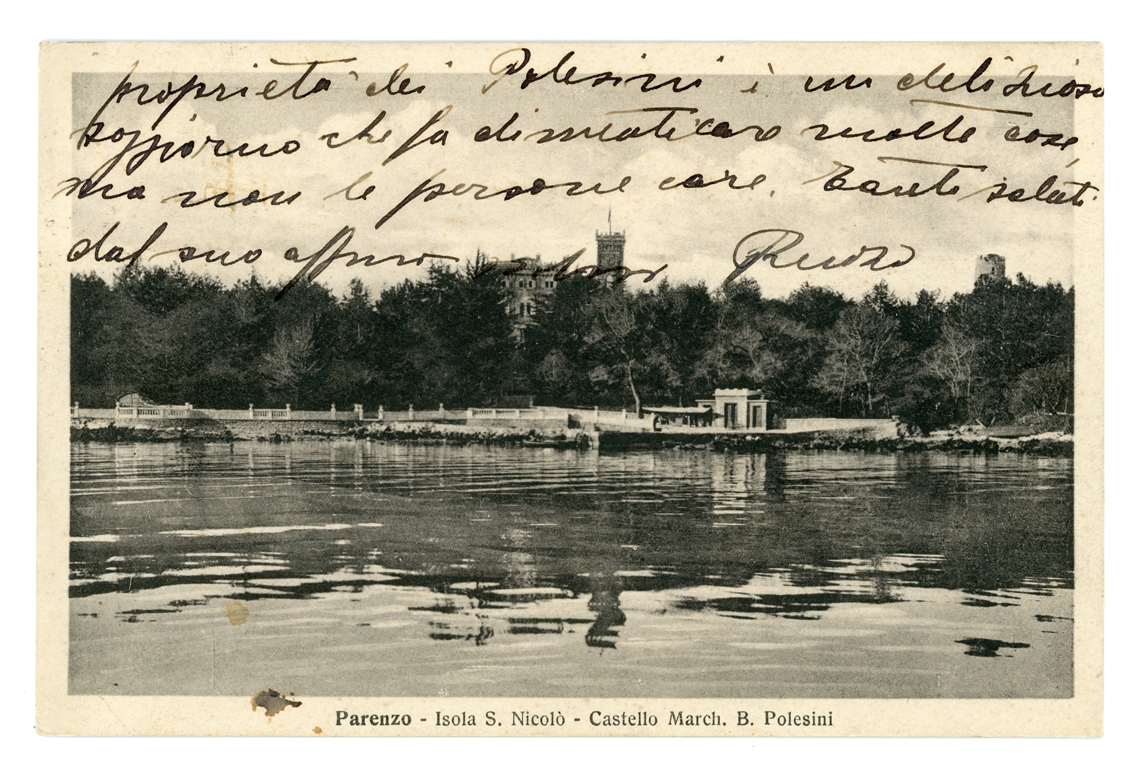 proprietà dei Polesini è un delizioso
soggiorno che fa dimenticare molte cose,
ma non le persone care. Tanti saluti
dal suo affmo
Parenzo - Isola S. Nicolò - Castello March. B. Polesini